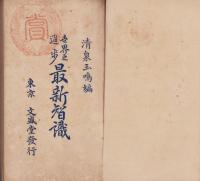 清泉玉鳴編
世界之進步
最新智識
東京 文盛堂發行